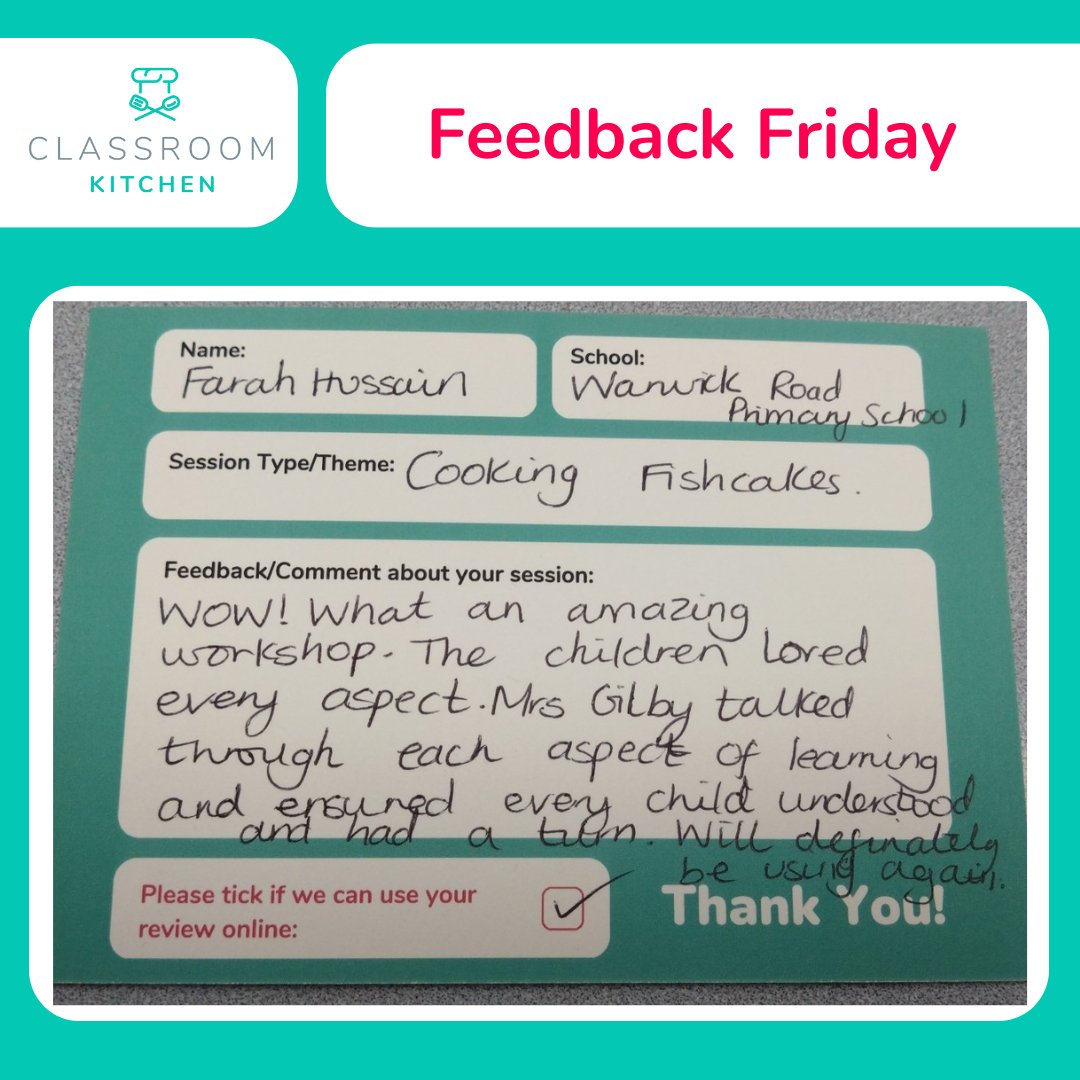 CLASSROOM
KITCHEN
Feedback Friday
Name:
Farah Hussain
School:
Warwick Road
Primary School
Session Type/Theme: Cooking Fishcakes.
Feedback/Comment about your session:
WOW! What an amazing
workshop. The children loved
every aspect. Mrs Gilby talked
through each aspect of learning
and ensured every child understood
and had a turn. Will definately
be using again.
Please tick if we can use your
review online:
Thank You!